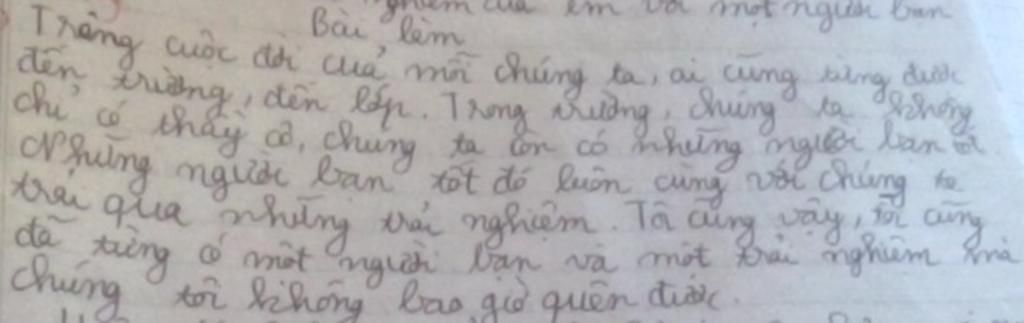 nghiệm của em với một người bạn
Bài làm
Trong cuộc đời của mỗi chúng ta, ai cũng từng được
đến trường, đến lớp. Trong trường, chúng ta không
chỉ có thầy cô, chúng ta còn có những người bạn tốt
Những người bạn tốt đó luôn cùng với chúng ta
trải qua những trải nghiệm. Tôi cũng vậy, tôi cũng
đã từng có một người bạn và một trải nghiệm mà
chúng tôi không bao giờ quên được.